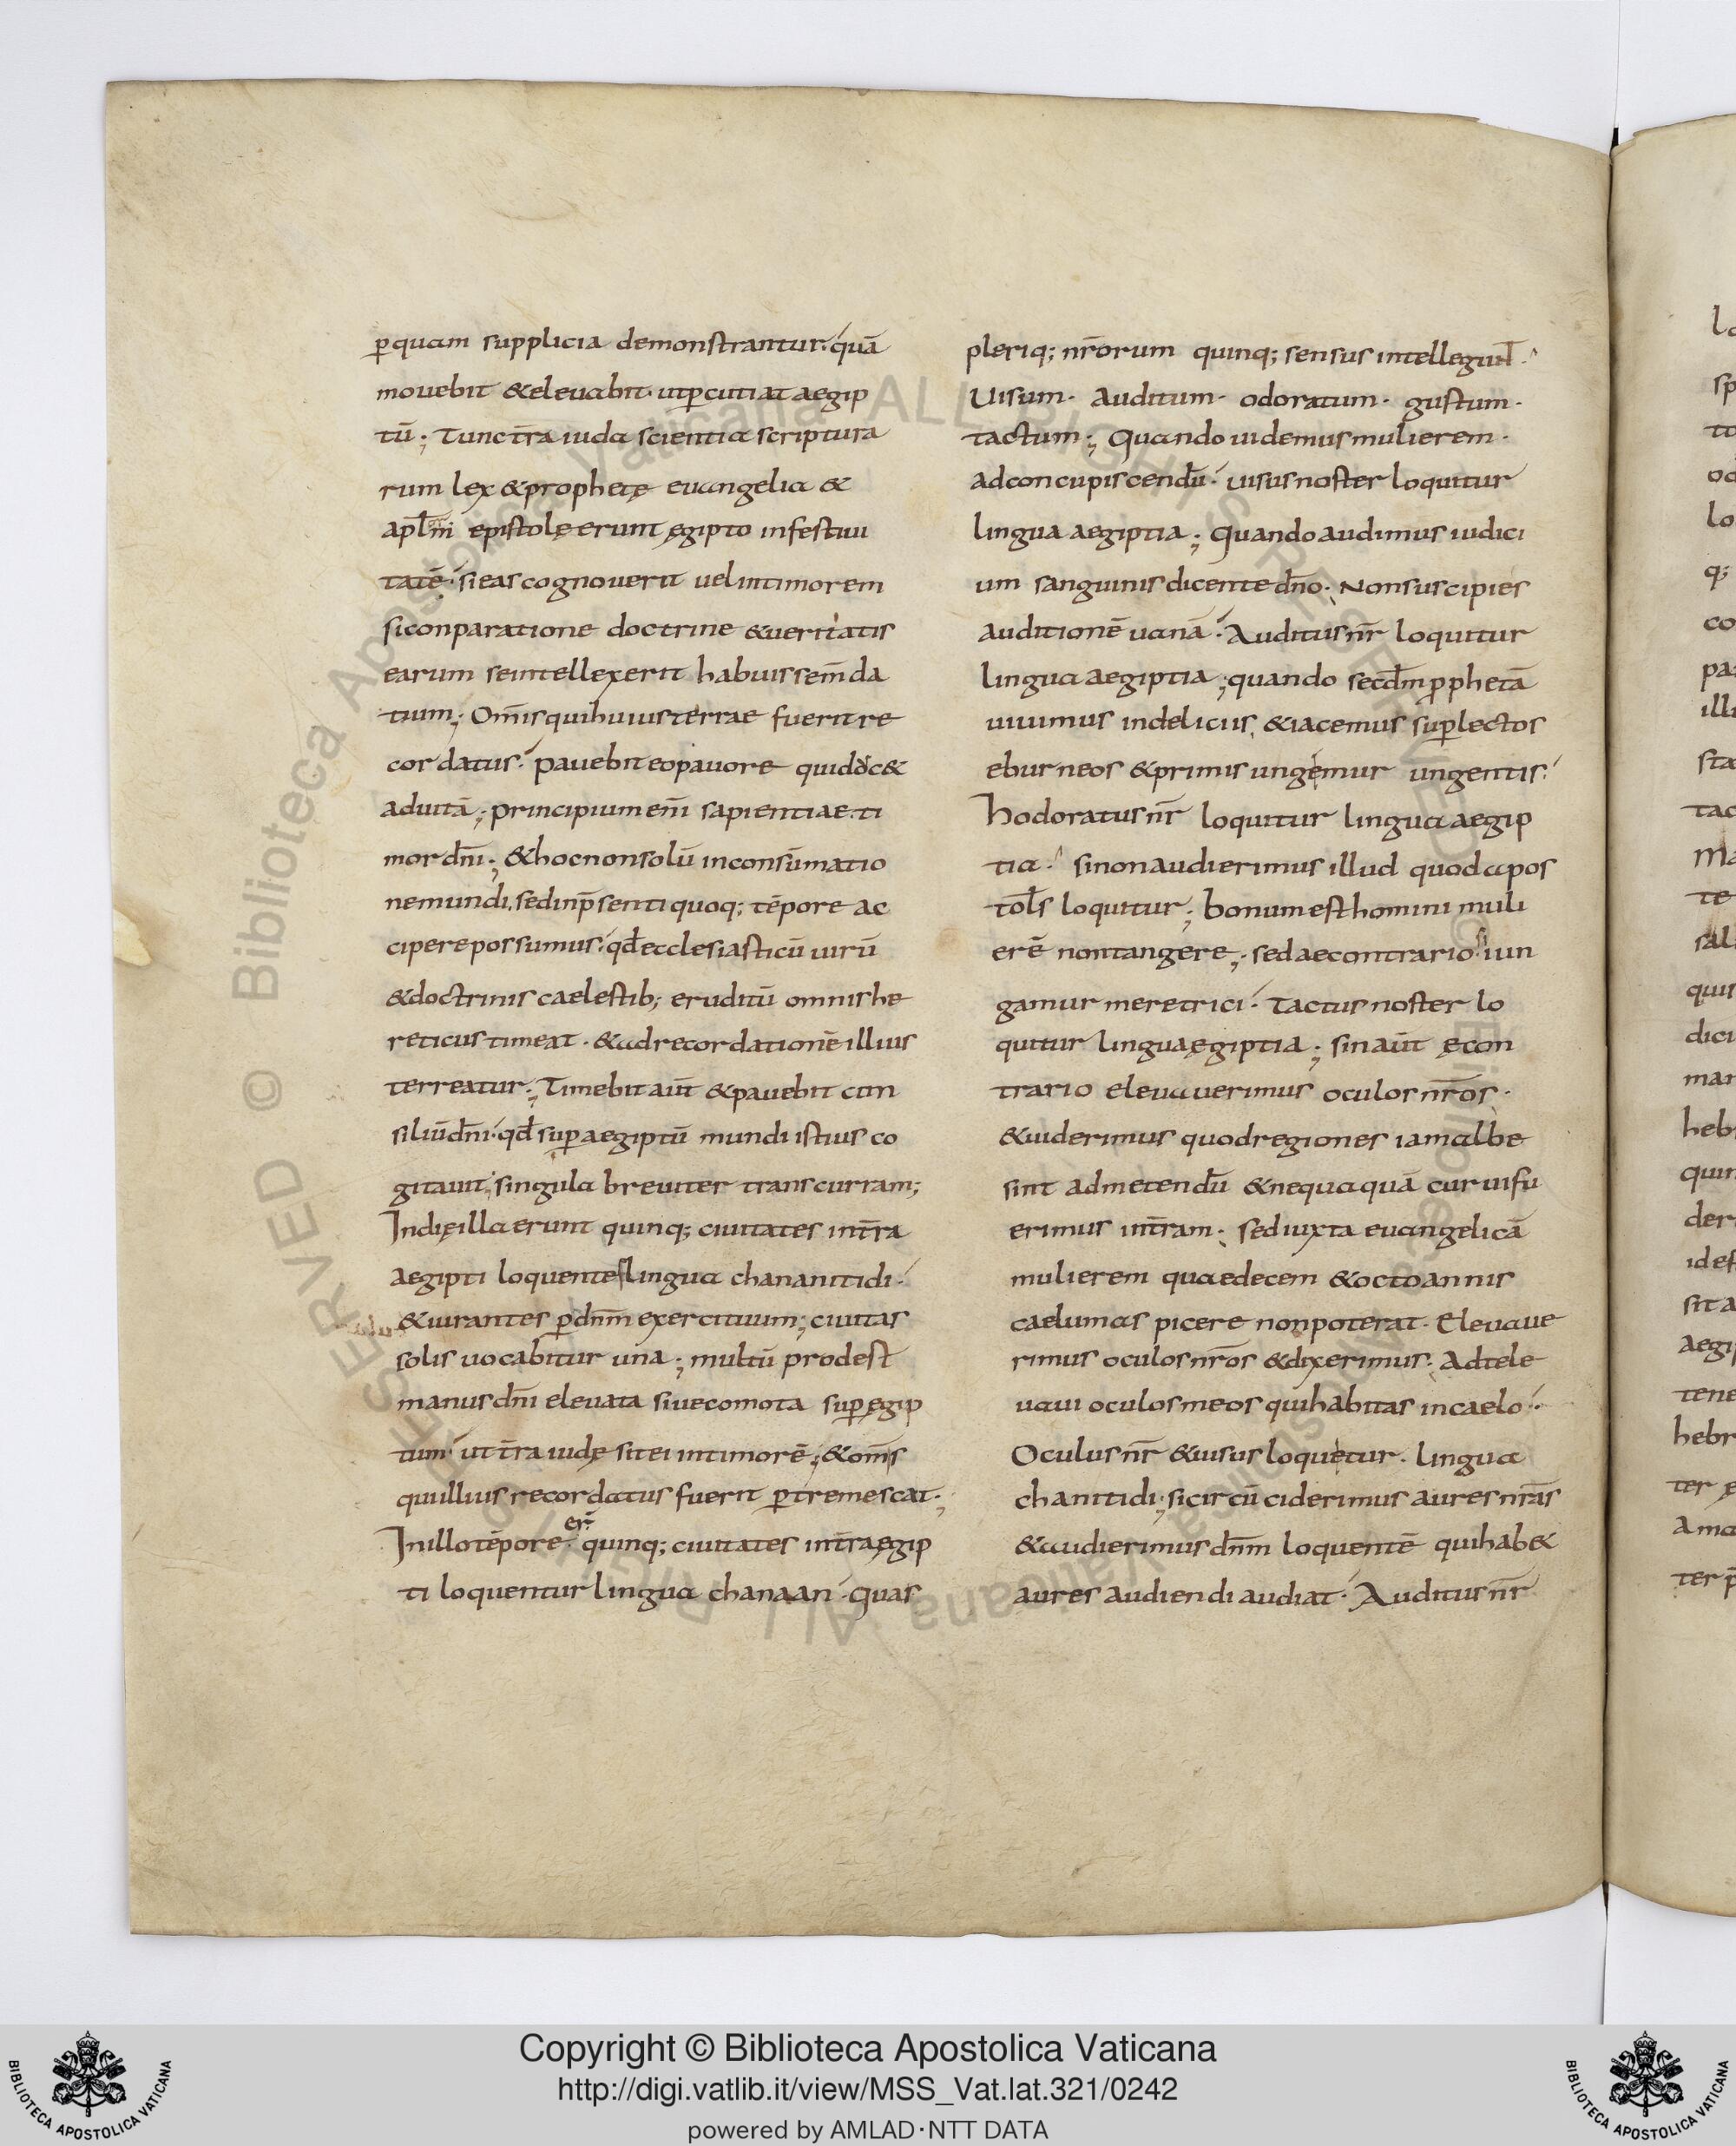 ꝑquam supplicia demonstrantur. quā
mouebit &eleuabit. utꝑcutiat aegip
tū; Tunc tr̄a iuda scientia scriptura
rum lex &prophetę euangelia &
apl̄m epistolę erunt ęgipto infestiui
tatē. sieas cognouerit uel intimorem
siconparatione doctrine &ueritatis
earum seintellexerit habuissem̄da
tium; Om̄is quihuius terrae fuerit re
cordatus. pauebit eopauore quidoc&
aduitā; principium eni̅ sapientiae. ti
mor dn̄i; &hocnonsolū inconsūmatio
nemundi. sedinp̄senti quoq; tēpore ac
cipere possumus. qd̄ ecclesiasticū uirū
&doctrinis caelestib; eruditū omnis he
reticus timeat. &adrecordationē illius
terreatur; Timebit aūt &pauebit con
siliū dn̄i. qd̄ suꝑ aegiptū mundi istius co
gitauit. singula breuiter transcurram;
Indię illa erunt quinq; ciuitates intr̄a
aegipti loquentes lingua chananitidi.
&iurantes ꝑ dn̄m exercituum; ciuitas
solis uocabitur una; multū prodest
manus dn̄i eleuata siuecomota suꝑ ęgip
tum. ut tr̄a iudę sit ei intimorē; &om̄s
quiillius recordatus fuerit ꝑtremescat;
er̄
Inillo tēpore quinq; ciuitates intr̄aęgip
ti loquentur lingua chanaan. Quas
pleriq; nr̄orum quinq; sensus intellegun̄t.
Uisum. Auditum. odoratum. gustum.
tactum; Quando uidemus mulierem.
adconcupiscendū. uisus noster loquitur
lingua aegiptia; Quando audimus iudici
um sanguinis dicente dn̄o. Nonsuscipies
auditionē uanā. Auditus nr̄ loquitur
lingua aegiptia; quando secd̄m ꝓphetā
uiuimus indeliciis, &iacemus suꝑ lectos
eburneos &primis ungemur ungentis.
hodoratus nr̄ loquitur lingua aegip
tia. sinon audierimus illud quod apos
tol̄s loquitur; bonum est homini muli
erē nontangere; sed aecontrario si iun
gamur meretrici. Tactus noster lo
quitur linguaęgiptia; sin aūt ęcon
trario eleuauerimus oculos nr̄os.
&uiderimus quod regiones iam albe
sint admetendū &nequaquā curuifu
erimus intr̄am. sed iuxta euangelicā
mulierem quaedecem &octo annis
caelumas picere nonpoterat. Eleuaue
rimus oculos nr̄os &dixerimus. Adtele
uaui oculos meos quihabitas incaelo.
Oculus nr̄ &uisus loquetur. lingua
chanitidi; si circūciderimus aures nr̄as
&audierimus dn̄m loquentē quihab&
aures audiendi audiat. Auditus nr̄
Copyright © Biblioteca Apostolica Vaticana
http://digi.vatlib.it/view/MSS_Vat.lat.321/0242
powered by AMLAD·NTT DATA
BIBLIOTECA APOSTOLICA VATICANA
BIBLIOTECA APOSTOLICA VATICANA